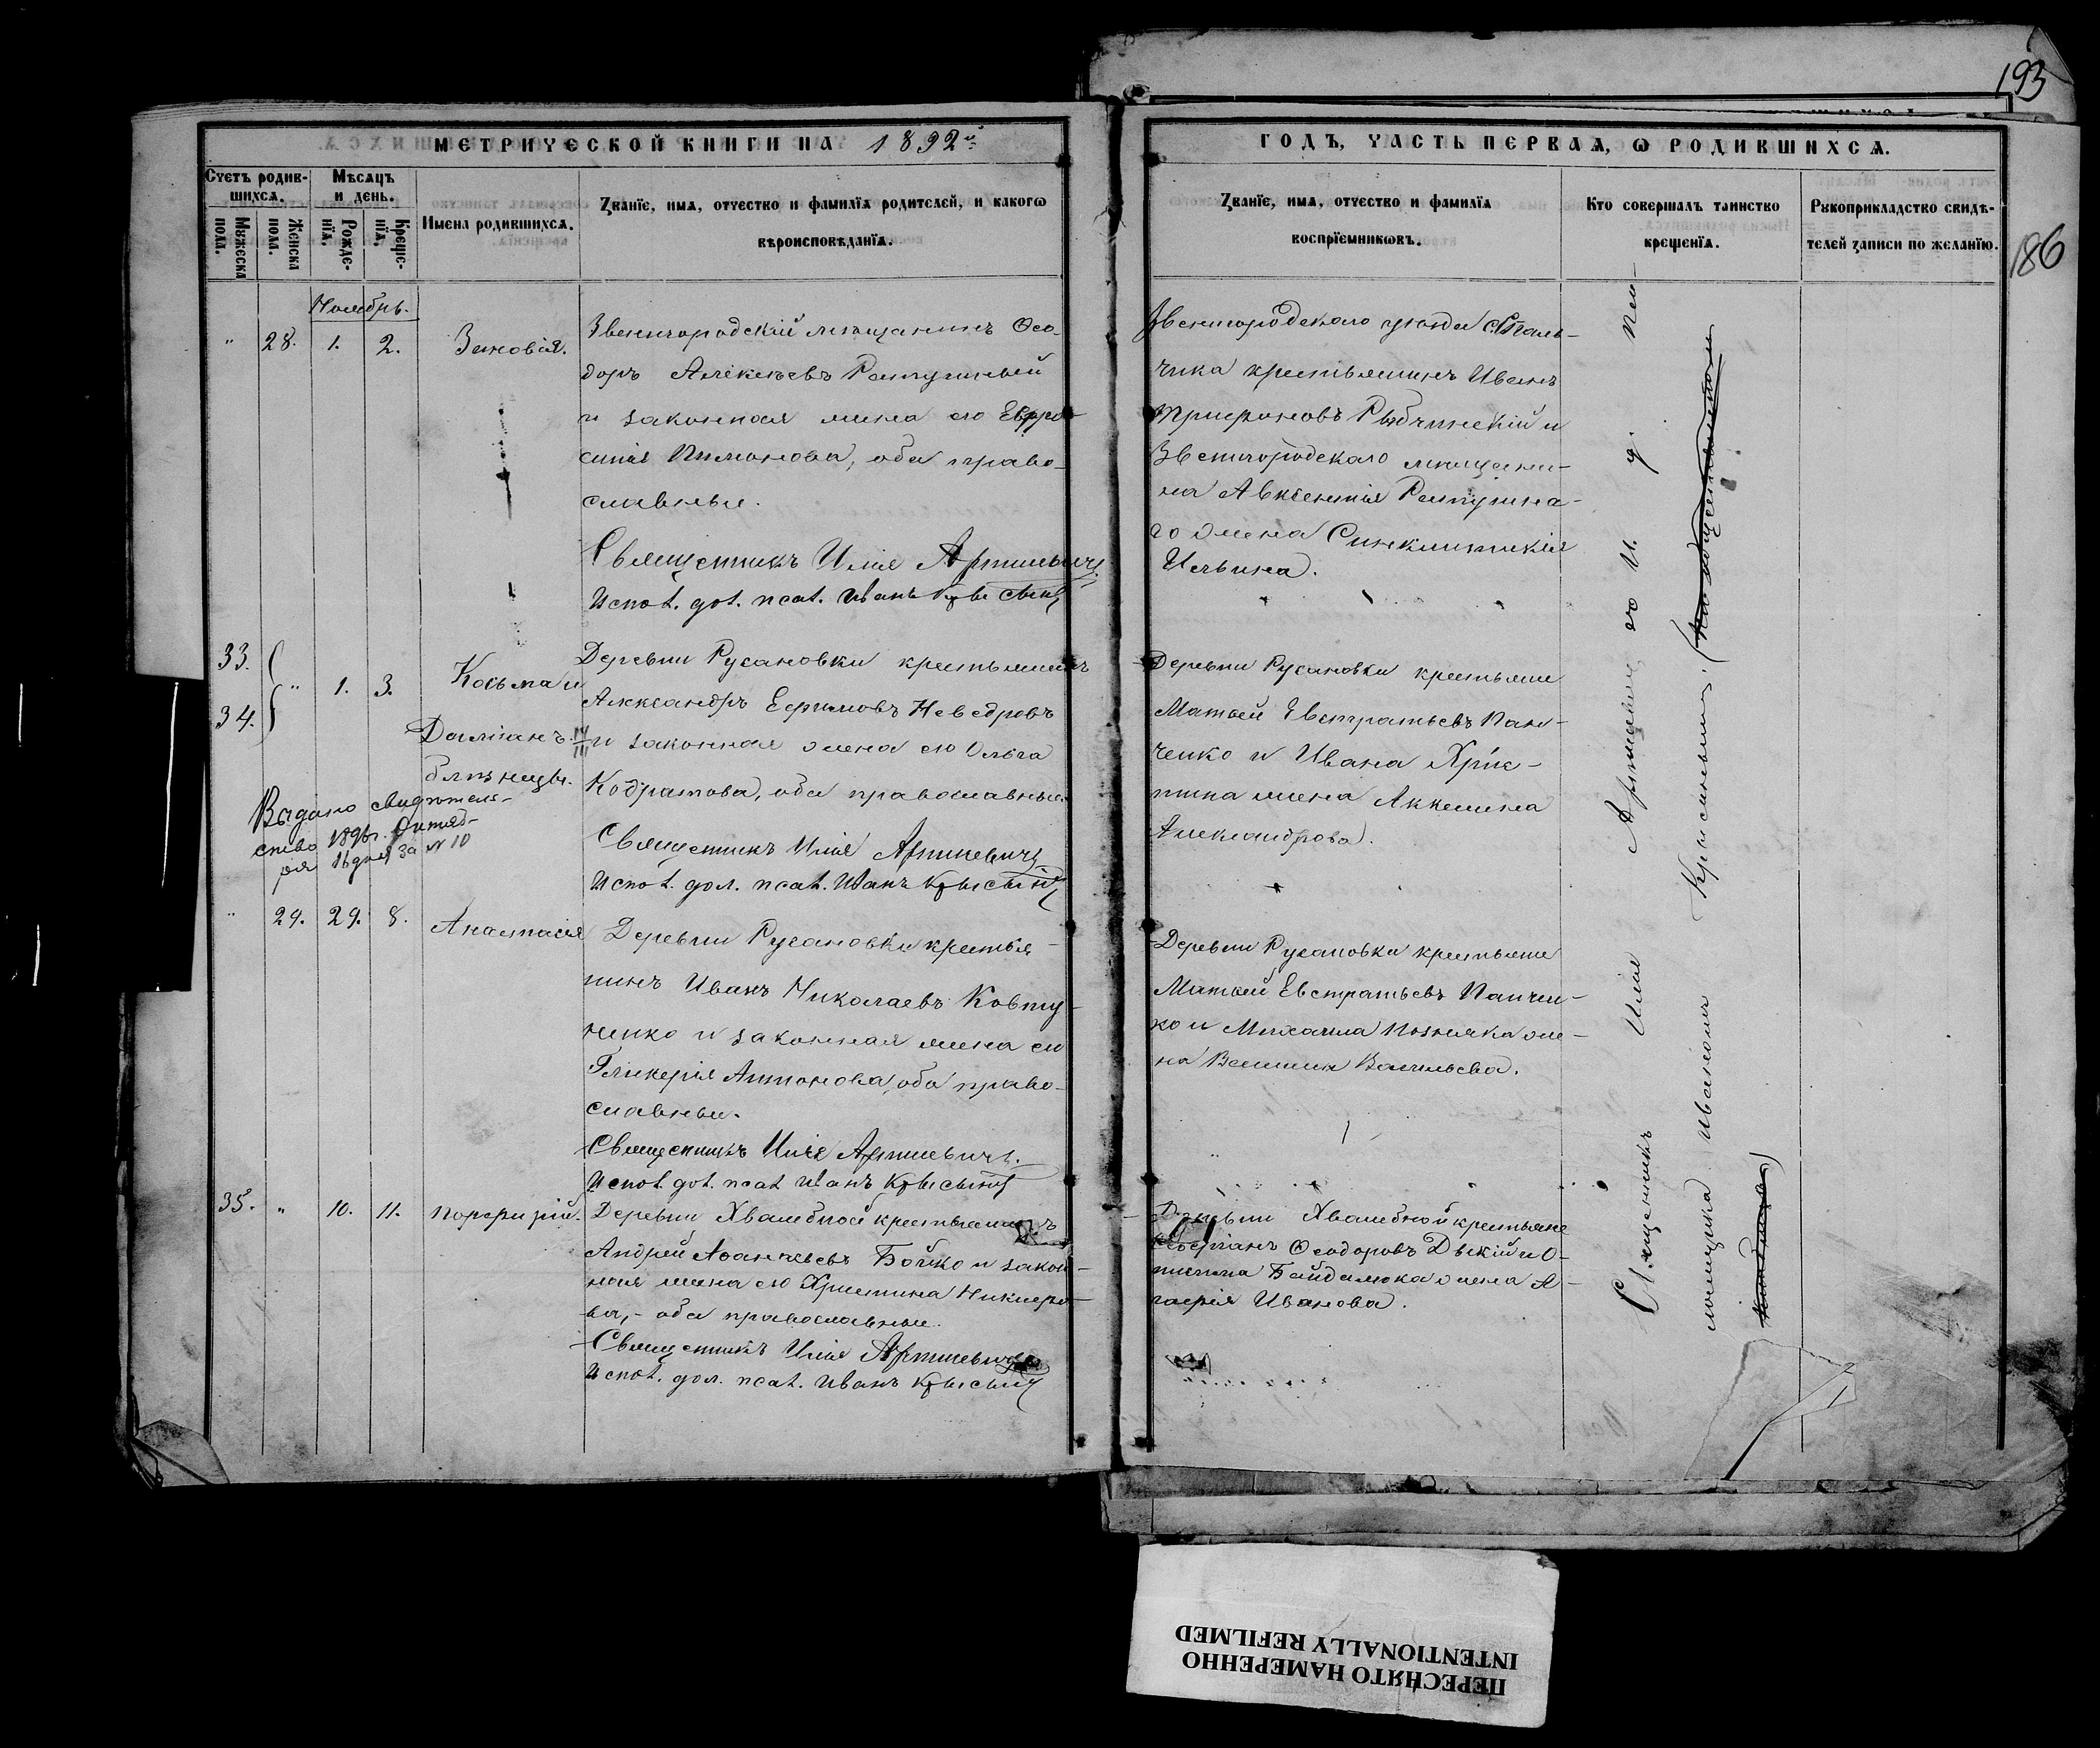 193
МЕТРИЧЕСКОЙ КНИГИ НА 1892й
ГОДЪ, ЧАСТЬ ПЕРВАЯ, Ѡ РОДИВШИХСЯ.
186
Счетъ родив-
шихся.
Мужеска
пола.
Женска
пола.
Мѣсяцъ
и день.
Рожде-
нія.
Креще-
нія.
Имена родившихся.
Званїе, имя, отчество и фамилїя родителей, и какогѡ
вѣроисповѣданїя.
Званїе, имя, отчество и фамилїя
воспрїемникѡвъ.
Кто совершалъ таинство
крещенїя.
Рукоприкладство свидѣ-
телей записи по желанїю.
Ноябрь.
" 28. 1. 2. Зиновія.
Звенигородскій мѣщанинъ Ѳео-
доръ Алексѣевъ
и законная жена его Евфро-
синія Пименова, оба право-
славные.
Священникъ Илія
Испол. дол. псал. Иванъ
Звенигородскаго уѣзда с.
чика крестьянинъ Иванъ
Трифоновъ и
Звенигородскаго мѣщани-
на Авксентія
го жена Синклитикія
Ильина.
33.
34. " 1. 3. Косьма и
Даміанъ
близнецы.
Деревни Русановки крестьянинъ
Александръ Ефимовъ Неведровъ
и законная жена его Ольга
Кодратова, оба православные
Священникъ Илія
Испол. дол. псал. Иванъ
Выдано свидѣтель-
ство 1896г. Октяб-
ря 16 дня за № 10
Деревни Русановки крестьяне
Матвей Евстратьевъ Пан-
ченко и Ивана Хрис-
тина жена Акилина
Александрова.
" 29. 29. 8. Анастасія
Деревни Русановки крестья-
нинъ Иванъ Николаевъ Ковту-
ненко и законная жена его
Гликерія Антонова, оба право-
славные.
Священникъ Илія
Испол. дол. псал. Иванъ
Деревни Русановки крестьяне
Матвей Евстратьевъ Панчен-
ко и Михаила Позняка же-
на Васильева.
35. " 10. 11. Порфирій.
Деревни Хвалебной крестьянинъ
Андрей Аѳанасьевъ Бойко и закон-
ная жена его Христина Никифо-
ва, - оба православные.
Священникъ Илія
Испол. дол. псал. Иванъ
Деревни Хвалебной крестьяне
Ѳеодоровъ и О-
Байдалюка жена А-
гафія Иванова.
Священникъ Илія
Иваномъ
ПЕРЕСНЯТО НАМЕРЕННО
INTENTIONALLY REFILMED